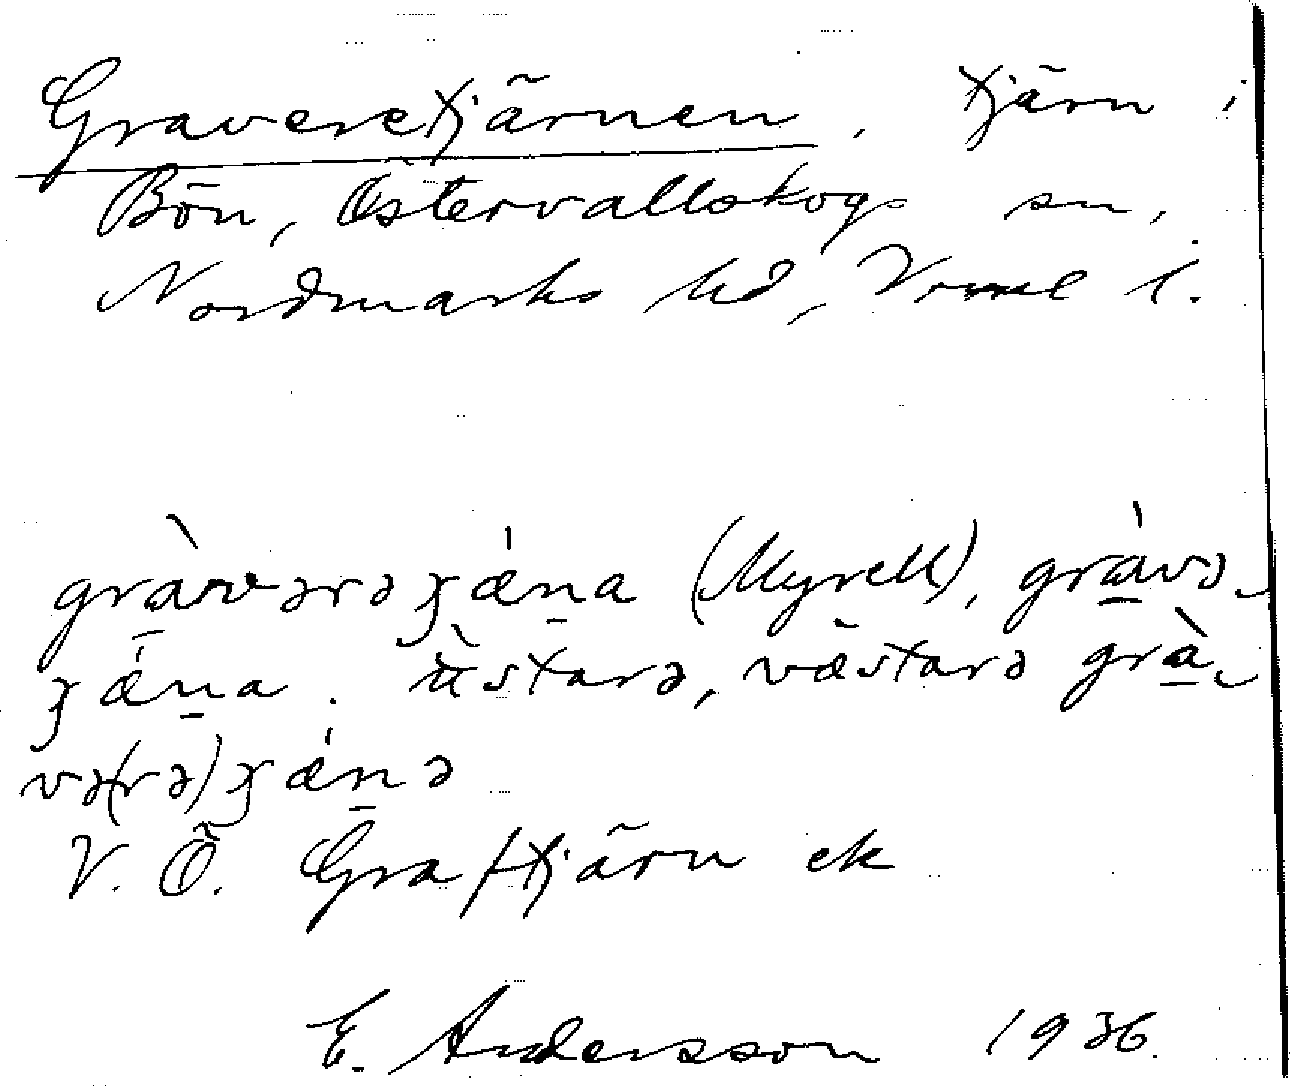 Graveretjärnen, tjärn i
Bön, Östervallskogs sn,
Nordmarks hd, Vrml l.
gràvərəʒǽna (Myrell), grávə-
ʒǽna. üstarə, västarə grà-
və(rə)ʒǽnə
V. Ö. Graftjärn ek
E. Andersson 1936.